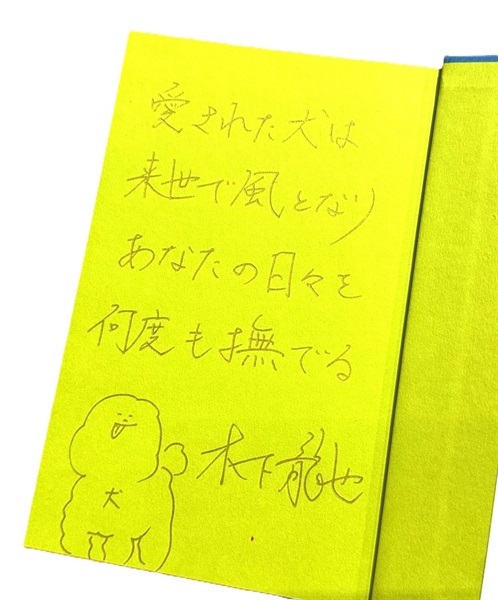 愛された犬は
来世で風となり
あなたの日々を
何度も撫でる
木下龍也
犬